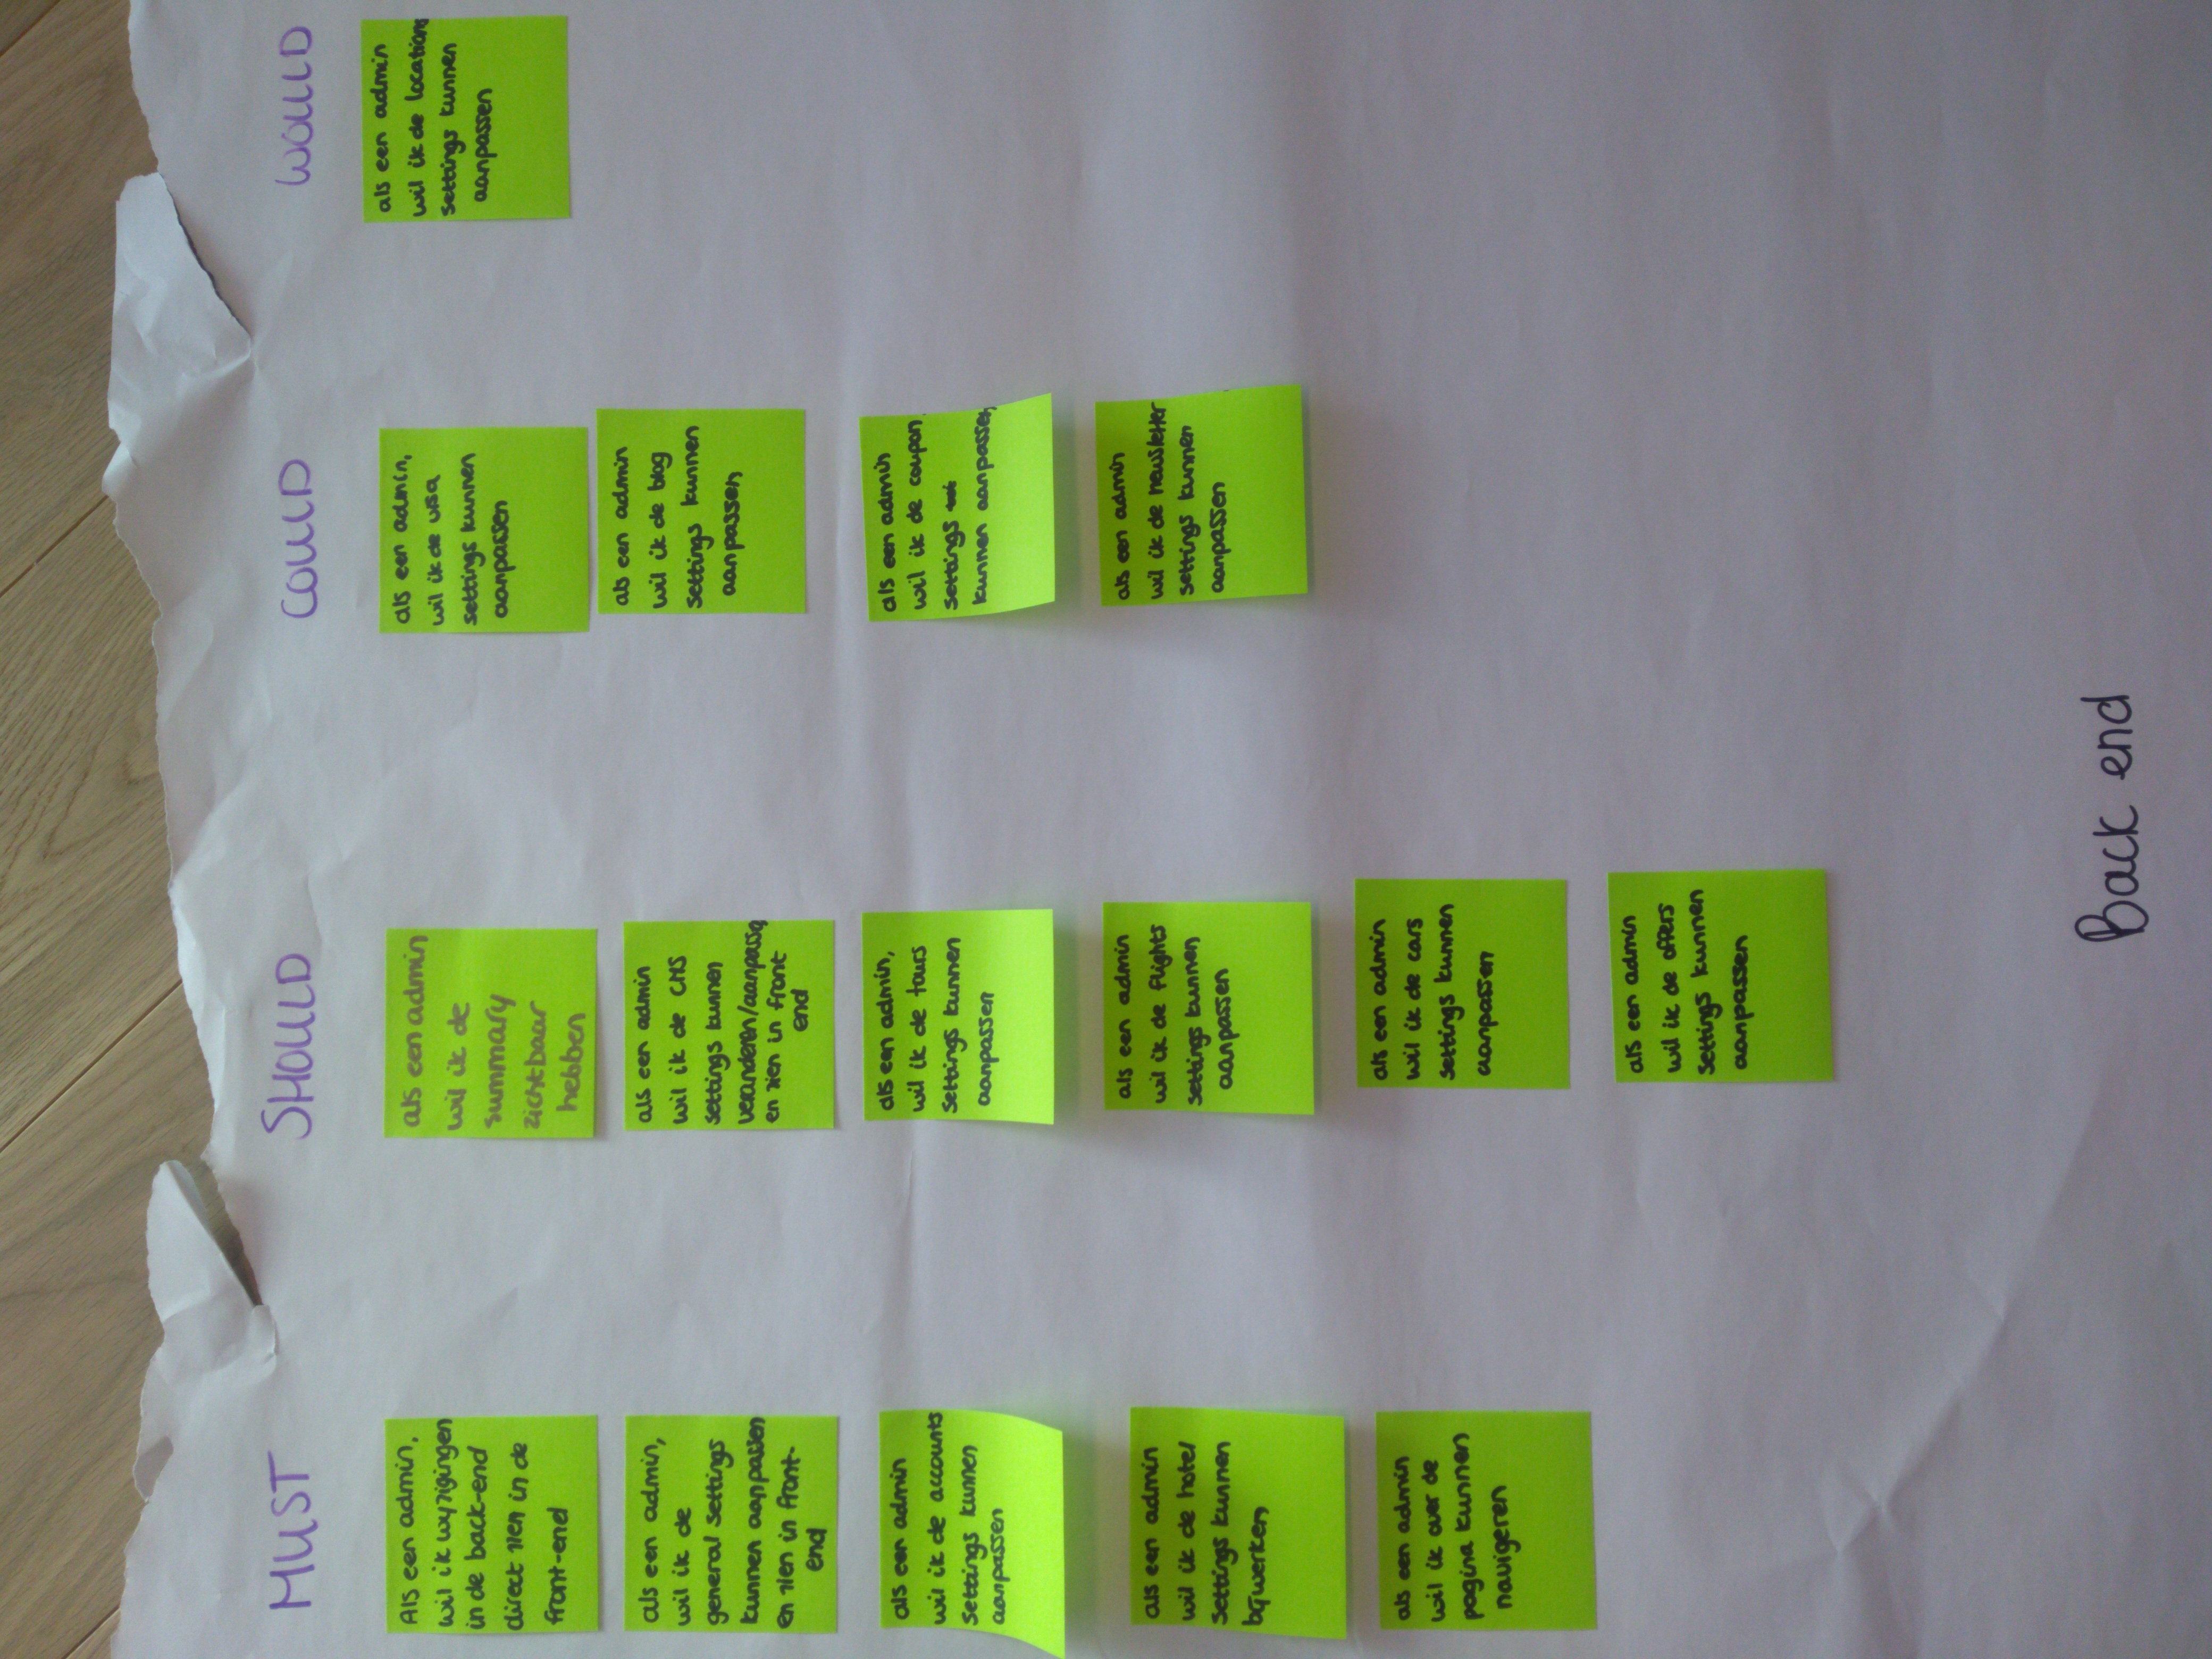 MUST
Als een admin,
wil ik wyzigingen
in de back-end
direct zien in de
front-end
als een admin,
wil ik de
general settings
kunnen aanpassen
en zien in front-
end
als een admin
wil ik de accounts
settings kunnen
aanpassen
als een admin
wil ik de hotel
settings kunnen
bijwerken
als een admin
wil ik over de
pagina kunnen
navigeren
SHOULD
als een admin
wil ik de
summary
zichtbaar
hebben
als een admin
wil ik de CMS
settings kunnen
veranderen/aanpassen
en zien in front
end
als een admin,
wil ik de tours
settings kunnen
aanpassen
als een admin
wil ik de flights
settings kunnen
aanpassen
als een admin
wil ik de cars
settings kunnen
aanpassen
als een admin
wil ik de offers
settings kunnen
aanpassen
COULD
als een admin,
wil ik de visa
settings kunnen
aanpassen
als een admin
wil ik de blog
settings kunnen
aanpassen
als een admin
wil ik de coupon
settings
kunnen aanpassen
als een admin
wil ik de newsletter
settings kunnen
aanpassen
WOULD
als een admin
wil ik de locations
settings kunnen
aanpassen
Back end